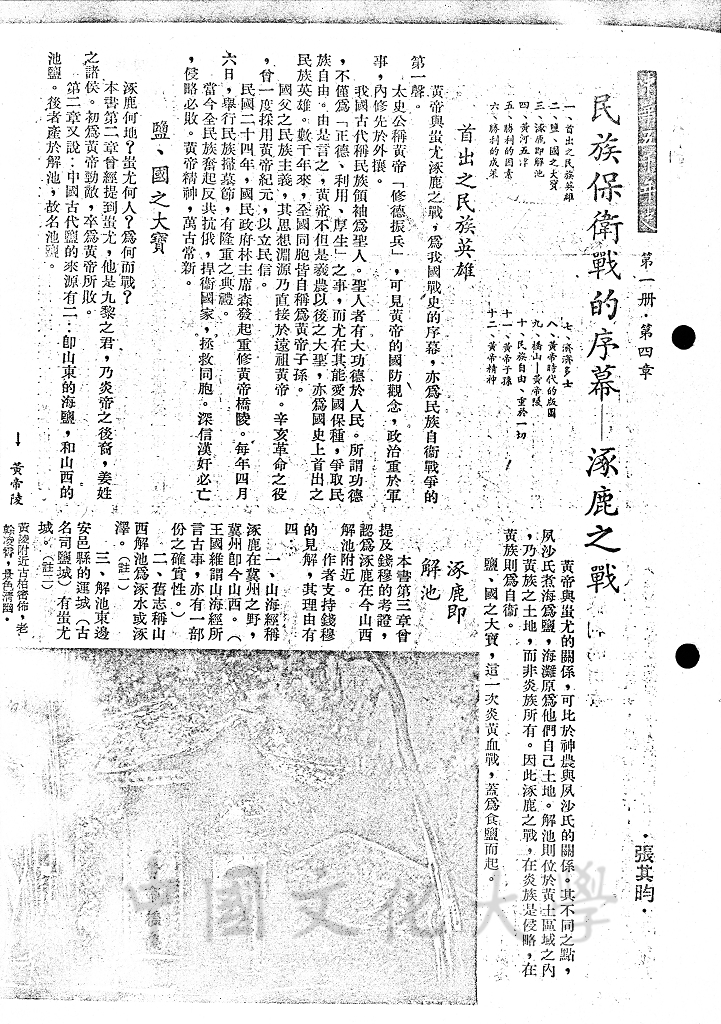 第一册・第四章
民族保衛戰的序幕—涿鹿之戰
・張其昀・
一、首出之民族英雄
二、鹽、國之大寶
三、涿鹿即解池
四、黃河五津
五、勝利的因素
六、勝利的成果
七、濟濟多士
八、黃帝時代的版圖
九、橋山—黃帝陵
十、民族自由、重於一切
十一、黃帝子孫
十二、黃帝精神
首出之民族英雄
黃帝與蚩尤涿鹿之戰，為我國戰史的序幕，亦為民族自衞戰爭的
第一聲。
太史公稱黃帝「修德振兵」，可見黃帝的國防觀念，政治重於軍
事，內修先於外攘。
我國古代稱民族領袖爲聖人。聖人者有大功德於人民。所謂功德
，不僅爲「正德、利用、厚生」之事，而尤在其能愛國保種，爭取民
族自由。由是言之，黃帝不但是羲農以後之大聖，亦爲國史上首出之
民族英雄。數千年來，全國同胞皆自稱爲黃帝子孫。
國父之民族主義，其思想淵源乃直接於遠祖黃帝。辛亥革命之役
，曾一度採用黃帝紀元，以立民信。
民國二十四年，國民政府林主席森發起重修黃帝橋陵。每年四月
六日，舉行民族掃墓節，有隆重之典禮。
當今全民族奮起反共抗俄，捍衞國家，拯救同胞。深信漢奸必亡
，侵略必敗。黃帝精神，萬古常新。
鹽、國之大寶
涿鹿何地？蚩尤何人？爲何而戰？
本書第二章曾經提到蚩尤，他是九黎之君，乃炎帝之後裔，姜姓
之諸侯。初爲黃帝勁敵，卒爲黃帝所敗。
第二章又說：中國古代鹽的來源有二：卽山東的海鹽，和山西的
池鹽。後者產於解池，故名池鹽。
黃帝與蚩尤的關係，可比於神農與夙沙氏的關係。其不同之點，
夙沙氏煮海爲鹽，海灘原爲他們自己土地。解池則位於黃土區域之內
，乃黃族之土地，而非炎族所有。因此涿鹿之戰，在炎族是侵略，在
黃族則爲自衞。
鹽、國之大寶，這一次炎黃血戰，蓋爲食鹽而起。
涿鹿即
解池
本書第三章曾
提及錢穆的考證，
認爲涿鹿在今山西
解池附近。
作者支持錢穆
的見解，其理由有
四
一、山海經稱
涿鹿在冀州之野，
冀州卽今山西。（
王國維謂山海經所
言古事，亦有一部
份之確實性。）
二、舊志稱山
西解池爲涿水或涿
澤。（註一）
三、解池東邊
安邑縣的運城（古
名司鹽城）有蚩尤
城。（註二）
↓ 黃帝陵
黃陵附近古柏密佈，老
幹凌霄，景色清幽。
中國文化大學